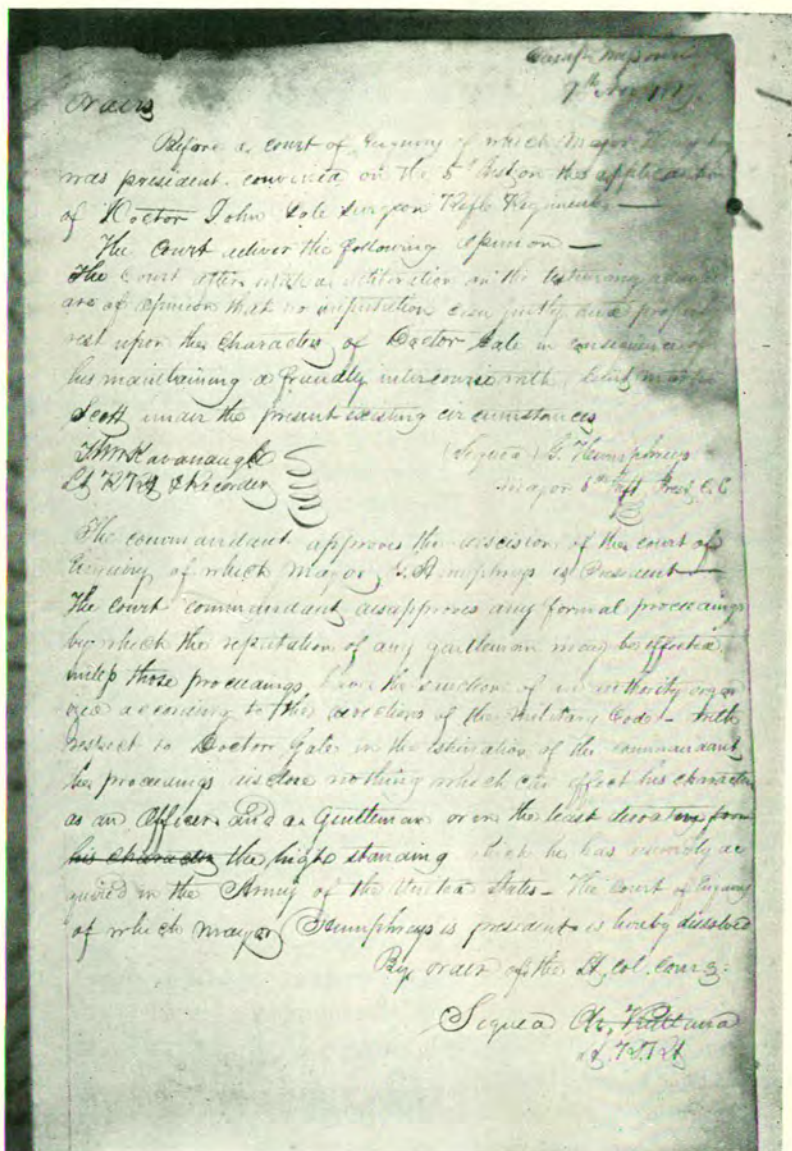 Camp Missouri
7th Nov 1819
Orders
Before a court of Enquiry of which Major Humphreys
was president convened on the 5th Inst on the application
of Doctor John Gale Surgeon Rifle Regiment —
The Court deliver the following opinion —
The Court after mature deliberation on the testimony
are of opinion that no imputation can justly and properly
rest upon the character of Doctor Gale in consequence of
his maintaining a friendly intercourse with
Scott under the present existing circumstances
Kavanaugh
Lt R Rgt & Recorder
(Signed) G. Humphreys
Major 6th Inft Prest. C. E
The commandant approves the discision of the court of
Enquiry of which Major G. Humphrys is President —
The court commandant disapproves any formal proceedings
by which the reputation of any gentleman may be effected
unless those proceedings have the sanction of an authority organ
ized according to the directions of the Military Code — with
respect to Doctor Gale in the estimation of the commandant,
the proceedings disclose nothing which can effect his character
as an Officer and a Gentleman or in the least derogatory from
his character the high standing which he has ac
quired in the Army of the United States — The Court of Enquiry
of which Mayor Humphreys is president is hereby dissolved
By order of the Lt. Col. Comg:
Signed
Lt. R. Rgt